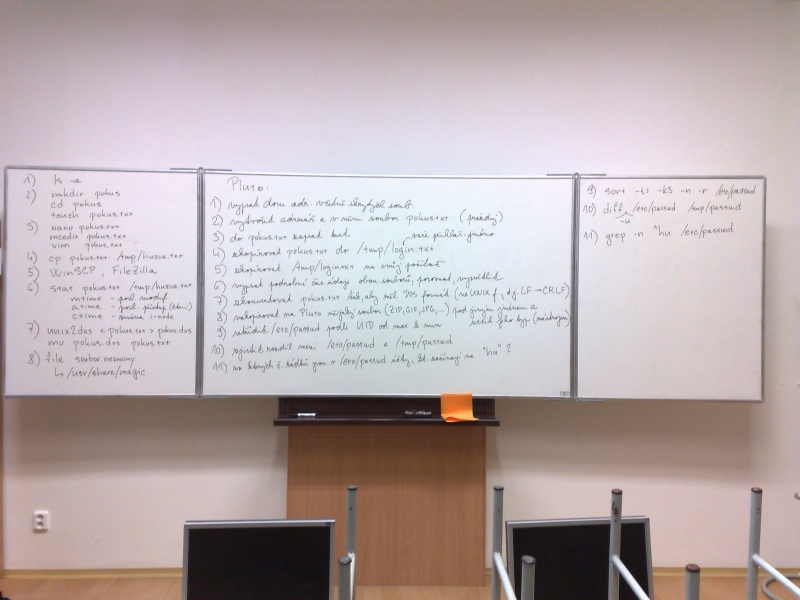 1) ls -a
2) mkdir pokus
cd pokus
touch pokus.txt
3) nano pokus.txt
mcedit pokus.txt
vim pokus.txt
4) cp pokus.txt /tmp/hutva.txt
5) WinSCP, FileZilla
6) stat pokus.txt /tmp/hutva.txt
mtime - posl. modif.
atime - posl. přístup (čtení)
ctime - změna i-node
7) unix2dos < pokus.txt > pokus.dos
mv pokus.dos pokus.txt
8) file soubor
↳ /usr/share/magic
Pluto:
1) vypsat dom. adr. včetně skrytých soub.
2) vytvořit adresář a v něm soubor pokus.txt (prázdný)
3) do pokus.txt napsat text
vaše přihlaš. jméno
4) zkopírovat pokus.txt do /tmp/login.txt
5) zkopírovat /tmp/login.txt na svůj počítač
6) vypsat podrobné čas. údaje obou souborů, porovnat, vysvětlit
7) zkonvertovat pokus.txt tak, aby měl DOS formát (na UNIXu, tj. LF→CRLF)
8) nakopírovat na Pluto nějaký soubor (ZIP, GIF, JPG, ...) pod jiným jménem a
určit jeho typ (nástrojem)
9) setřídit /etc/passwd podle UID od max k min
10) zjistit rozdíl mezi /etc/passwd a /tmp/passwd
11) na kterých č. řádků jsou v /etc/passwd účty, kt. začínají na "hu"?
9) sort -t: -k3 -n -r /etc/passwd
10) diff /etc/passwd /tmp/passwd
-u
11) grep -n ^hu /etc/passwd